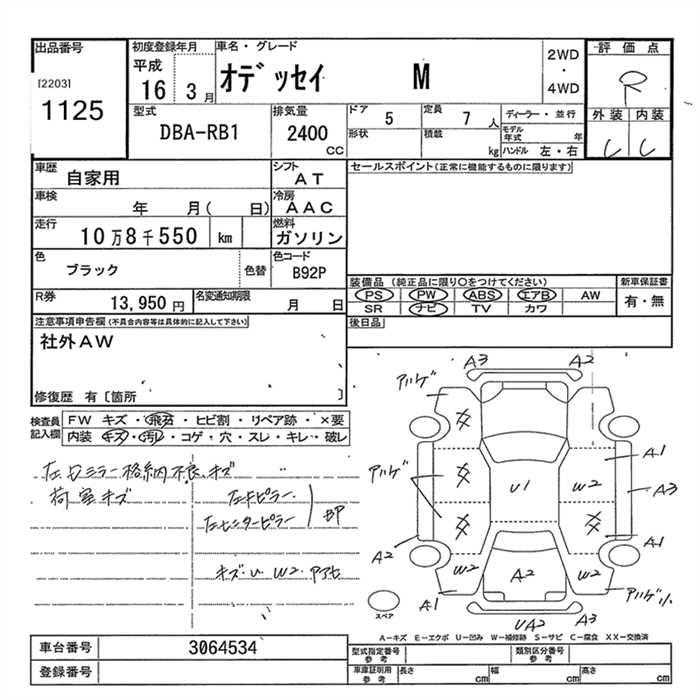 出品番号
[2203]
1125
初度登録年月
平成
16 3月
車名・グレード
オデッセイ M
2WD
・
4WD
評価点
R
外装 内装
C C
型式
DBA-RB1
排気量
2400
CC
ドア 5
定員 7 人
形状
積載 kg
ディーラー・並行
モデル年式 年
ハンドル 左・右
車歴
自家用
シフト
AT
車検
年 月( 日)
冷房
AAC
走行
10万8千550 km
燃料
ガソリン
色
ブラック
色替
色コード
B92P
R券
13,950円
名変通知期限
月 日
セールスポイント(正常に機能するものに限ります)
装備品(純正品に限り○をつけてください)
PS PW ABS エアB AW
SR ナビ TV カワ
新車保証書
有・無
後日品
注意事項申告欄(不具合内容等は具体的に記入して下さい)
社外AW
修復歴 有〔箇所 〕
検査員
記入欄
FW キズ・飛石・ヒビ割・リペア跡・×要
内装 キズ・汚れ・コゲ・穴・スレ・キレ・破レ
左ドミラー格納不良、キズ
荷室キズ
左Fピラー
左センターピラー
BP
キズ・U W2 アアセ
A3 A2
アハゲ
A1
アハゲ
U1
W2
A3
A2
A1
W2
A2
W2
A1
アハゲ
UA2
A3
スペア
A−キズ E−エクボ U−凹み W−補修跡 S−サビ C−腐食 XX−交換済
車台番号 3064534
登録番号
型式指定番号
参考
類別区分番号
参考
車庫証明用
参考
長さ cm
幅 cm
高さ cm